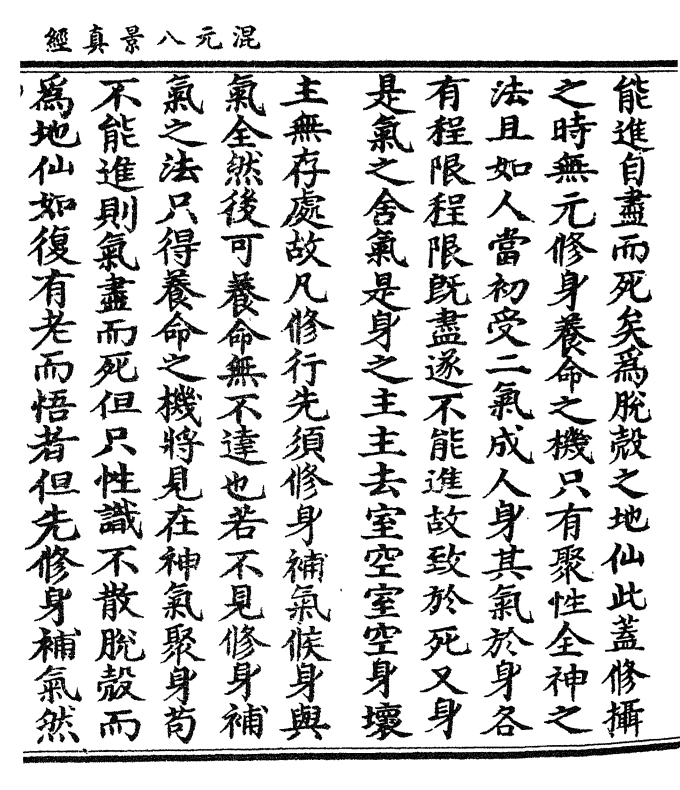 混元八景真經
能進自盡而死矣為脫殼之地仙此蓋修攝
之時無元修身養命之機只有聚性全神之
法且如人當初受二氣成人身其氣於身各
有程限程限既盡遂不能進故致於死又身
是氣之舍氣是身之主主去室空室空身壞
主無存處故凡修行先須修身補氣候身與
氣全然後可養命無不達也若不見修身補
氣之法只得養命之機將見在神氣聚身苟
不能進則氣盡而死但只性識不散脫殼而
為地仙如復有老而悟者但先修身補氣然